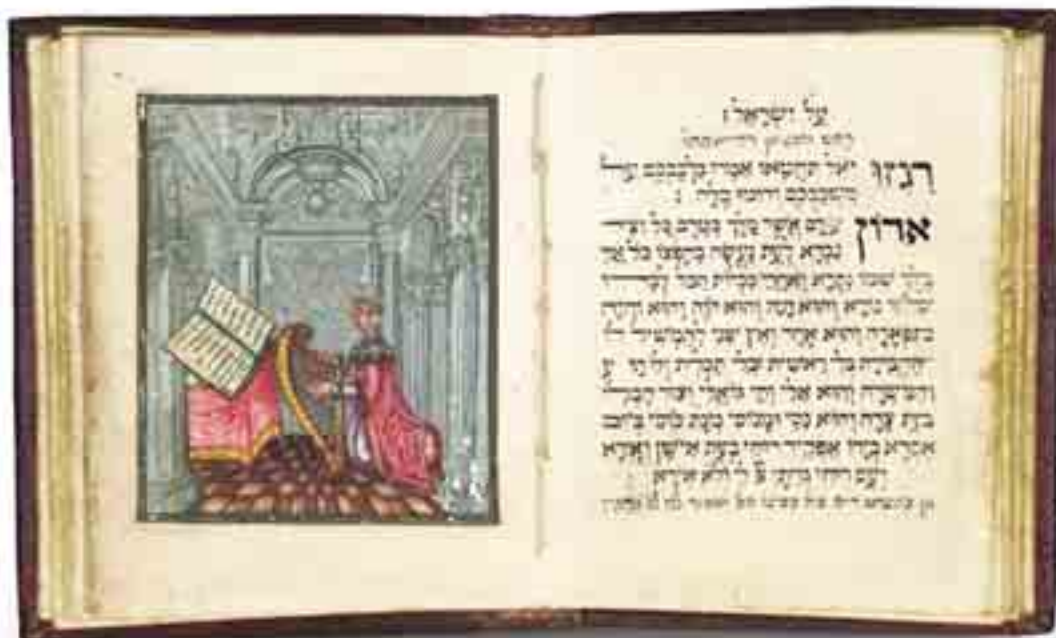 על ישראל :
רגזו ואל תחטאו אמרו בלבבכם על
משכבכם ודומו סלה :
אדון עולם אשר מלך בטרם כל יציר
נברא לעת נעשה בחפצו כל אזי
מלך שמו נקרא ואחרי ככלות הכל לבדו
ימלוך נורא והוא היה והוא הוה והוא יהיה
בתפארה והוא אחד ואין שני להמשיל לו
להחבירה בלי ראשית בלי תכלית ולו
והמשרה והוא אלי וחי גואלי וצור חבלי
בעת צרה והוא נסי ומנוסי מנת כוסי ביום
אקרא בידו אפקיד רוחי בעת אישן ואעירה
ועם רוחי גויתי לי ולא אירא